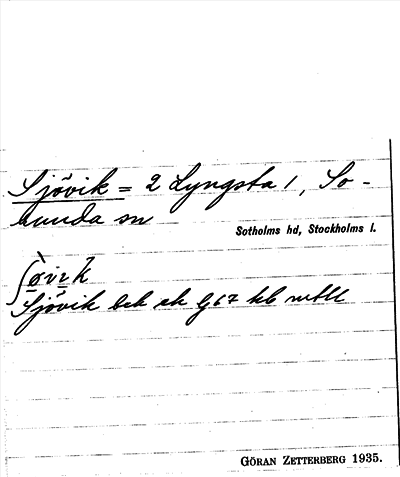 Sjövik = 2 Lyngsta 1, So-
runda sn
Sotholms hd, Stockholms l.
Sjövik bek ek G67 kb
GÖRAN ZETTERBERG 1935.